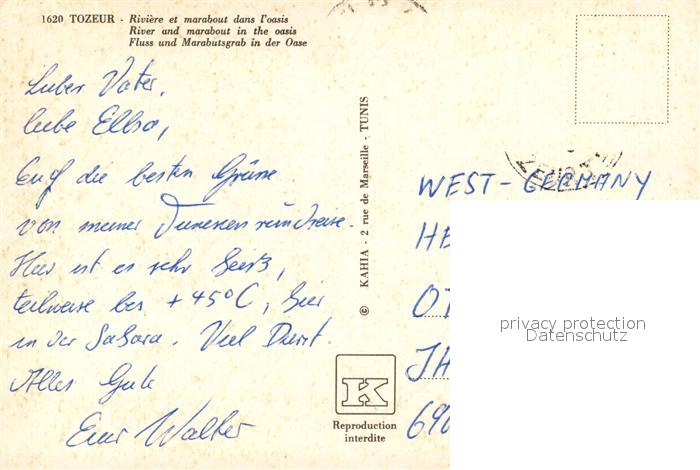 1620 TOZEUR - Rivière et marabout dans l'oasis
River and marabout in the oasis
Fluss und Marabutsgrab in der Oase
Lieber Vater,
liebe Ellro,
Euch die besten Grüße
von meiner Tunesienrundreise.
Hier ist es sehr heiß,
teilweise bis +45°C, hier
in der Sahara. Viel Durst.
Alles Gute
Euer Walter
© KAHIA - 2 rue de Marseille - TUNIS
K
Reproduction
interdite
WEST-GERMANY
HE
OT
JH
690
privacy protection
Datenschutz